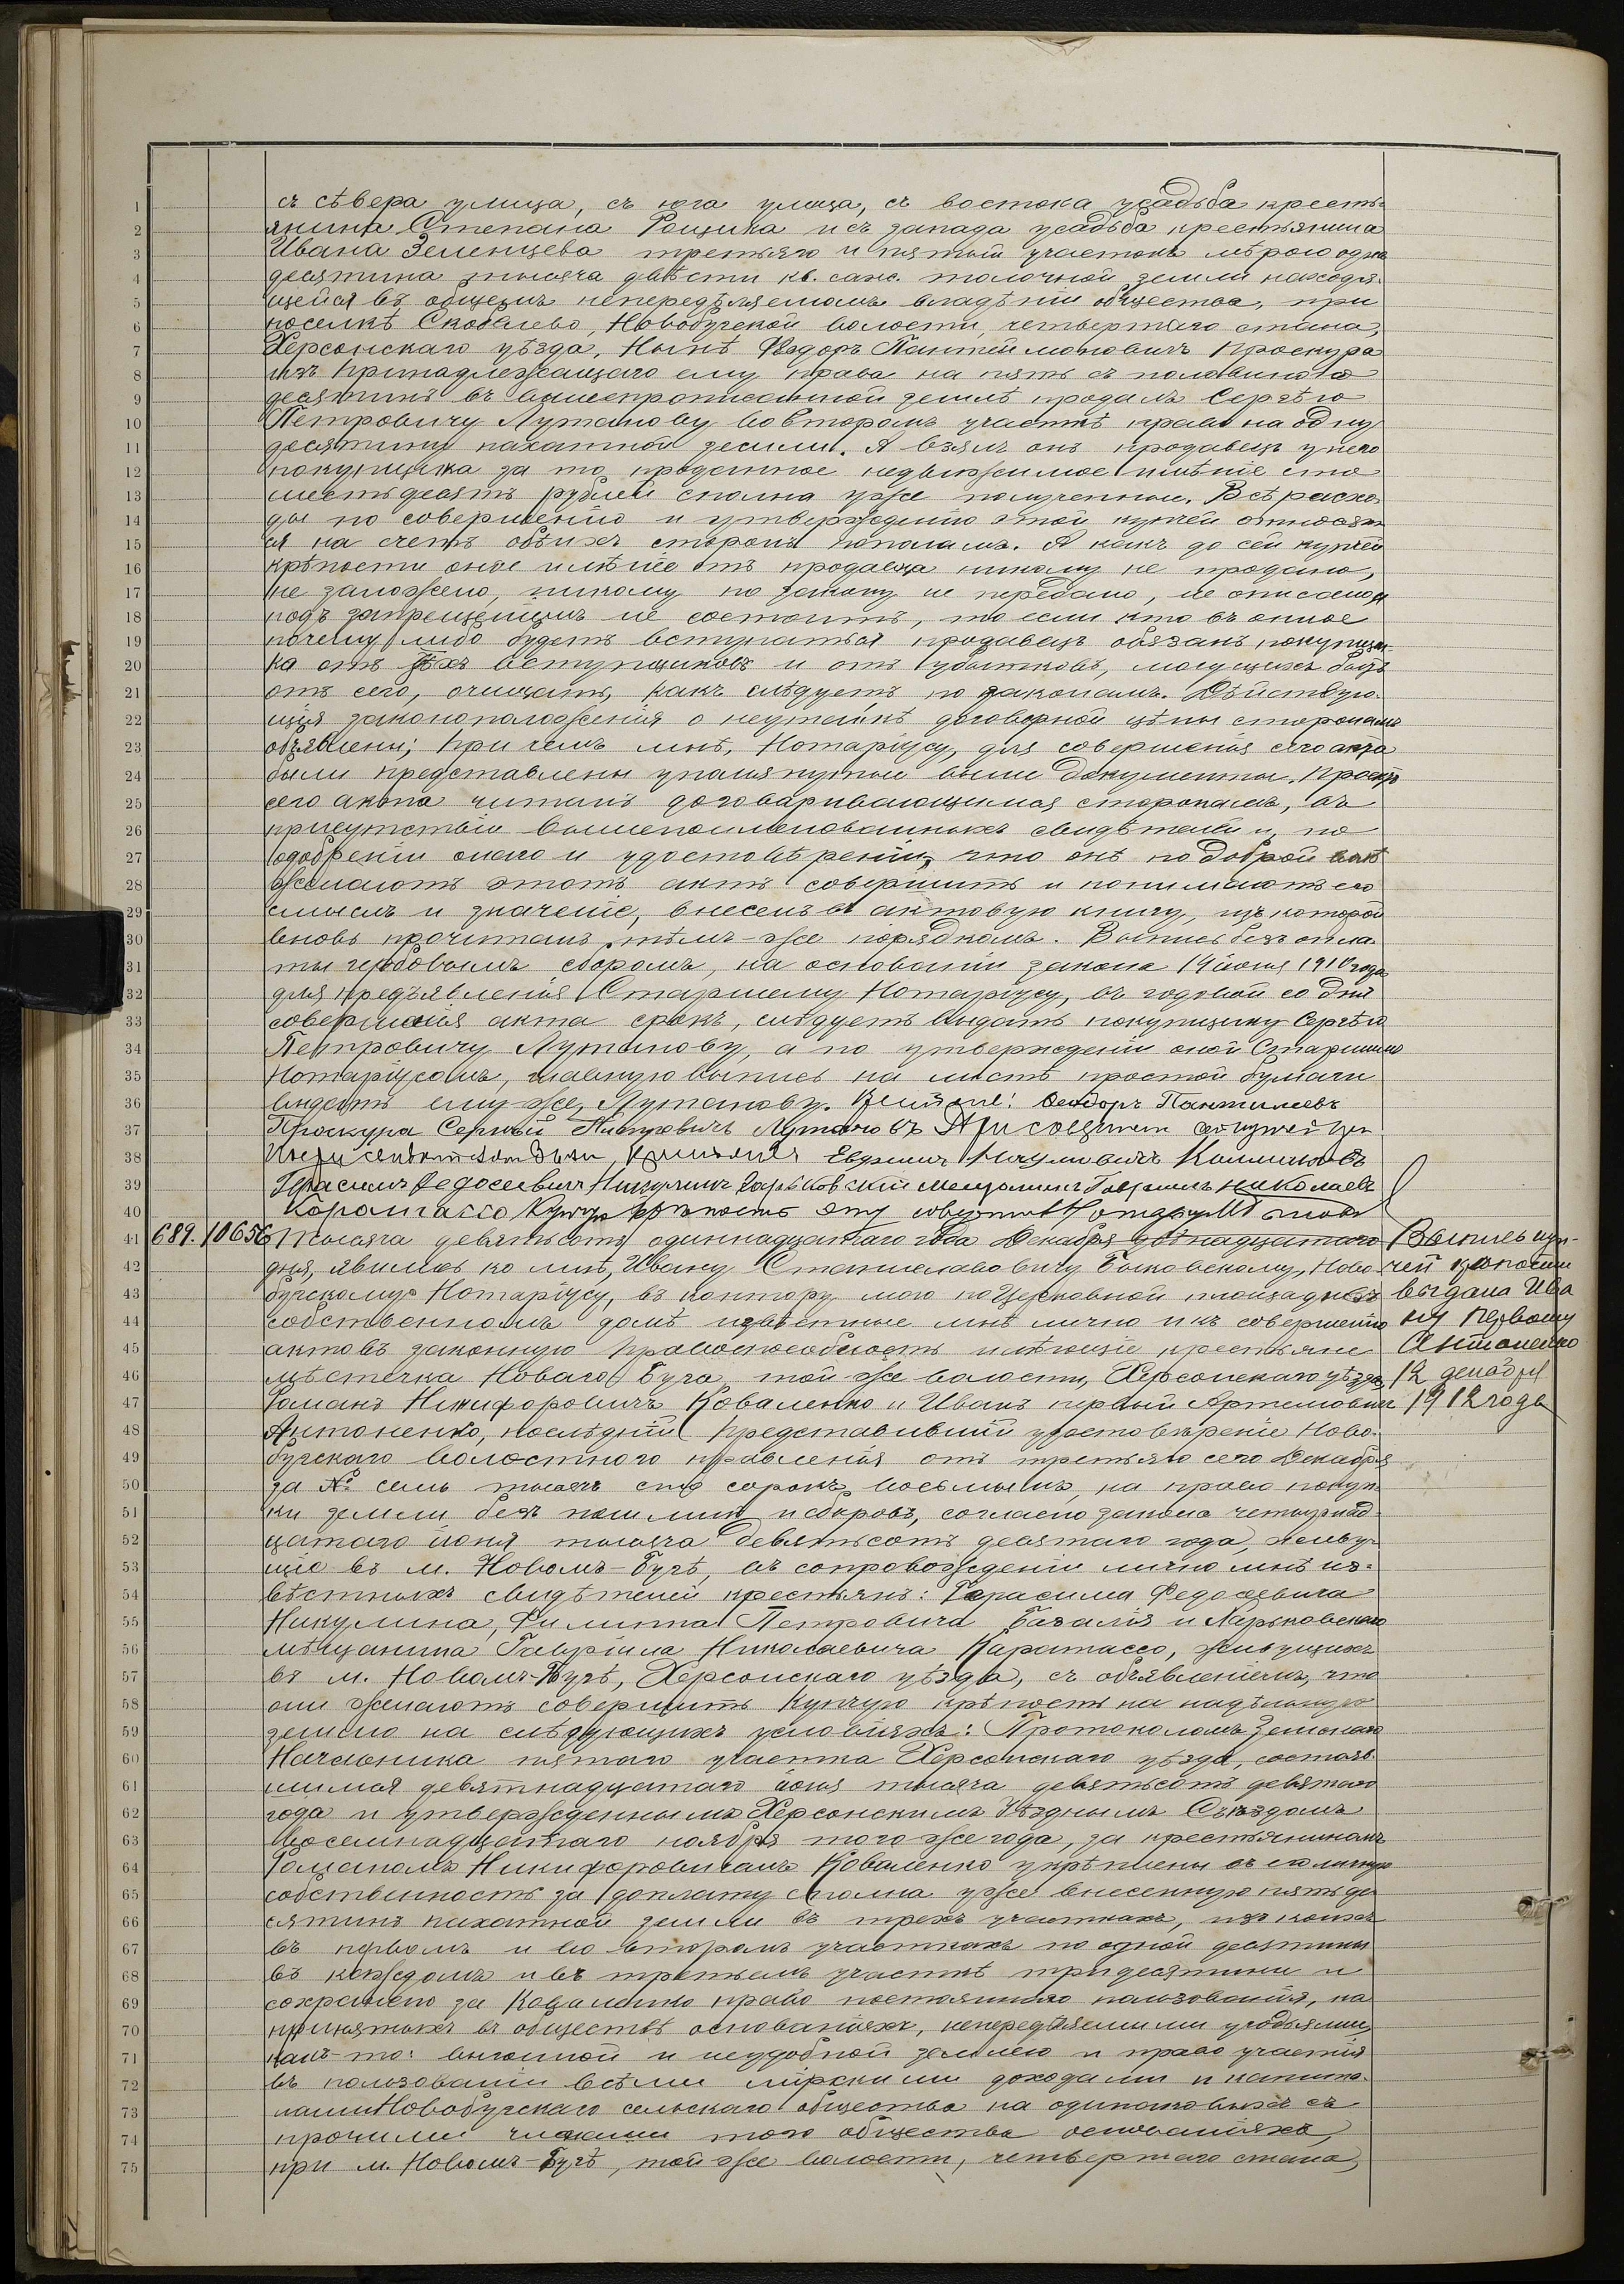 съ сѣвера улица, съ юга улица, съ востока усадьба кресть-
янина Степана Рощика и съ запада усадьба крестьянина
Ивана Зеленцева третьяго и пятый участокъ мѣрою одна
десятина тысяча двѣсти кв. саж. толочной земли находя-
щейся въ общемъ непередѣляемомъ владѣніи общества, при
поселкѣ Скобелево, Новобугской волости, четвертаго стана,
Херсонскаго уѣзда. Нынѣ Федоръ Пантеймоновичъ Проскура
изъ принадлежащаго ему права на пять съ половиною
десятинъ въ вышепрописанной землѣ продалъ Сергѣю
Петровичу Лутанову во второмъ участкѣ право на одну
десятину пахатной земли. А взялъ онъ продавецъ у него
покупщика за то проданное недвижимое имѣніе сто
шестьдесятъ рублей сполна уже полученные. Всѣ расхо-
ды по совершенію и утвержденію этой купчей относят
ся на счетъ обѣихъ сторонъ пополамъ. А какъ до сей купчей
крѣпости оное имѣніе отъ продавца никому не продано,
не заложено, никому по закону не передано, не описано и
подъ запрещеніемъ не состоитъ, то если кто въ оное
почему либо будетъ вступаться продавецъ обязанъ покупщи-
ка отъ тѣхъ вступщиковъ и отъ убытковъ, могущихъ быть
отъ сего, очищать, какъ слѣдуетъ по законамъ. Дѣйствую-
щія законоположенія о неутайкѣ договорной цѣны сторонамъ
объявлены; при чемъ мнѣ, Нотаріусу, для совершенія сего акта
были представлены упомянутые выше документы. Проектъ
сего акта читанъ договаривающимся сторонамъ, въ
присутствіи вышепоименованныхъ свидѣтелей и, по
одобреніи онаго и удостовѣреніи, что онѣ по доброй волѣ
желаютъ этотъ актъ совершить и понимаютъ его
смыслъ и значеніе, внесенъ въ актовую книгу, изъ которой
вновь прочитанъ тѣмъ-же порядкомъ. Выпись безъ опла-
ты гербовымъ сборомъ, на основаніи закона 14 іюня 1910 года
для предъявленія Старшему Нотаріусу, въ годовой со дня
совершенія акта срокъ, слѣдуетъ выдать покупщику Сергѣю
Петровичу Лутанову, а по утвержденіи оной Старшимъ
Нотаріусомъ, главную выпись на листѣ простой бумаги
выдать ему-же, Лутанову. Федоръ Пантилеевъ
Проскура Сергѣй Петровичъ Лутановъ При совершеніи сей купчей
свидѣтелями были крестьяне Евдокимъ Калиниковъ
Герасимъ Федосеевичъ Никулинъ Харьковскій мещанинъ Гавріилъ Николаевъ
Каратассо Купчую крѣпость эту совершилъ Нотаріусъ
689. 10656 Тысяча девятьсотъ одиннадцатаго года Декабря двѣнадцатаго
дня, явились ко мнѣ, Ивану Станиславовичу Быковскому, Ново-
бугскому Нотаріусу, въ контору мою по Церковной площади въ
собственномъ домѣ извѣстные мнѣ лично и къ совершенію
актовъ законную правоспособность имѣющіе крестьяне
мѣстечка Новаго Буга, той же волости, Херсонскаго уѣзда,
Романъ Никифоровичъ Коваленко и Иванъ первый Артемовичъ
Антоненко, послѣдній представившій удостовѣреніе Ново-
бугскаго волостного правленія отъ третьяго сего Декабря
за № семь тысячъ сто сорокъ восьмымъ, на право покуп-
ки земли безъ пошлинъ и сборовъ, согласно закона четырнад-
цатаго іюня тысяча девятьсотъ десятаго года, живу-
щіе въ м. Новомъ-Бугѣ, въ сопровожденіи лично мнѣ из-
вѣстныхъ свидѣтелей крестьянъ: Герасима Федосѣевича
Никулина, Филиппа Петровича Базалія и Харьковскаго
мѣщанина Гавріила Николаевича Каратассо, живущихъ
въ м. Новомъ-Бугѣ, Херсонскаго уѣзда, съ объявленіемъ, что
они желаютъ совершить купчую крѣпость на надѣльную
землю на слѣдующихъ условіяхъ: Протоколомъ Земскаго
Начальника пятаго участка Херсонскаго уѣзда, состояв-
шимся девятнадцатаго іюня тысяча девятьсотъ девятаго
года и утвержденнымъ Херсонскимъ Уѣзднымъ Съѣздомъ
восемнадцатаго ноября того же года, за крестьяниномъ
Романомъ Никифоровичемъ Коваленко укрѣплены въ его личную
собственность за доплату сполна уже внесенную пять де-
сятинъ пахатной земли въ трехъ участкахъ, изъ коихъ
въ первомъ и во второмъ участкахъ по одной десятины
въ каждомъ и въ третьемъ участкѣ три десятины и
сохранено за Коваленко право постояннаго пользованія, на
принятыхъ въ обществѣ основаніяхъ, непередѣляемыми угодьями,
какъ-то: выгонной и неудобной землею и право участія
въ пользованіи всѣми мірскими доходами и капита-
лами Новобугскаго сельскаго общества на одинаковыхъ съ
прочими членами того общества основаніяхъ,
при м. Новомъ-Бугѣ, той же волости, четвертаго стана,
Выпись куп-
чей крѣпости
выдана Ива
ну Первому
Антоненко
12 декабря
1912 года